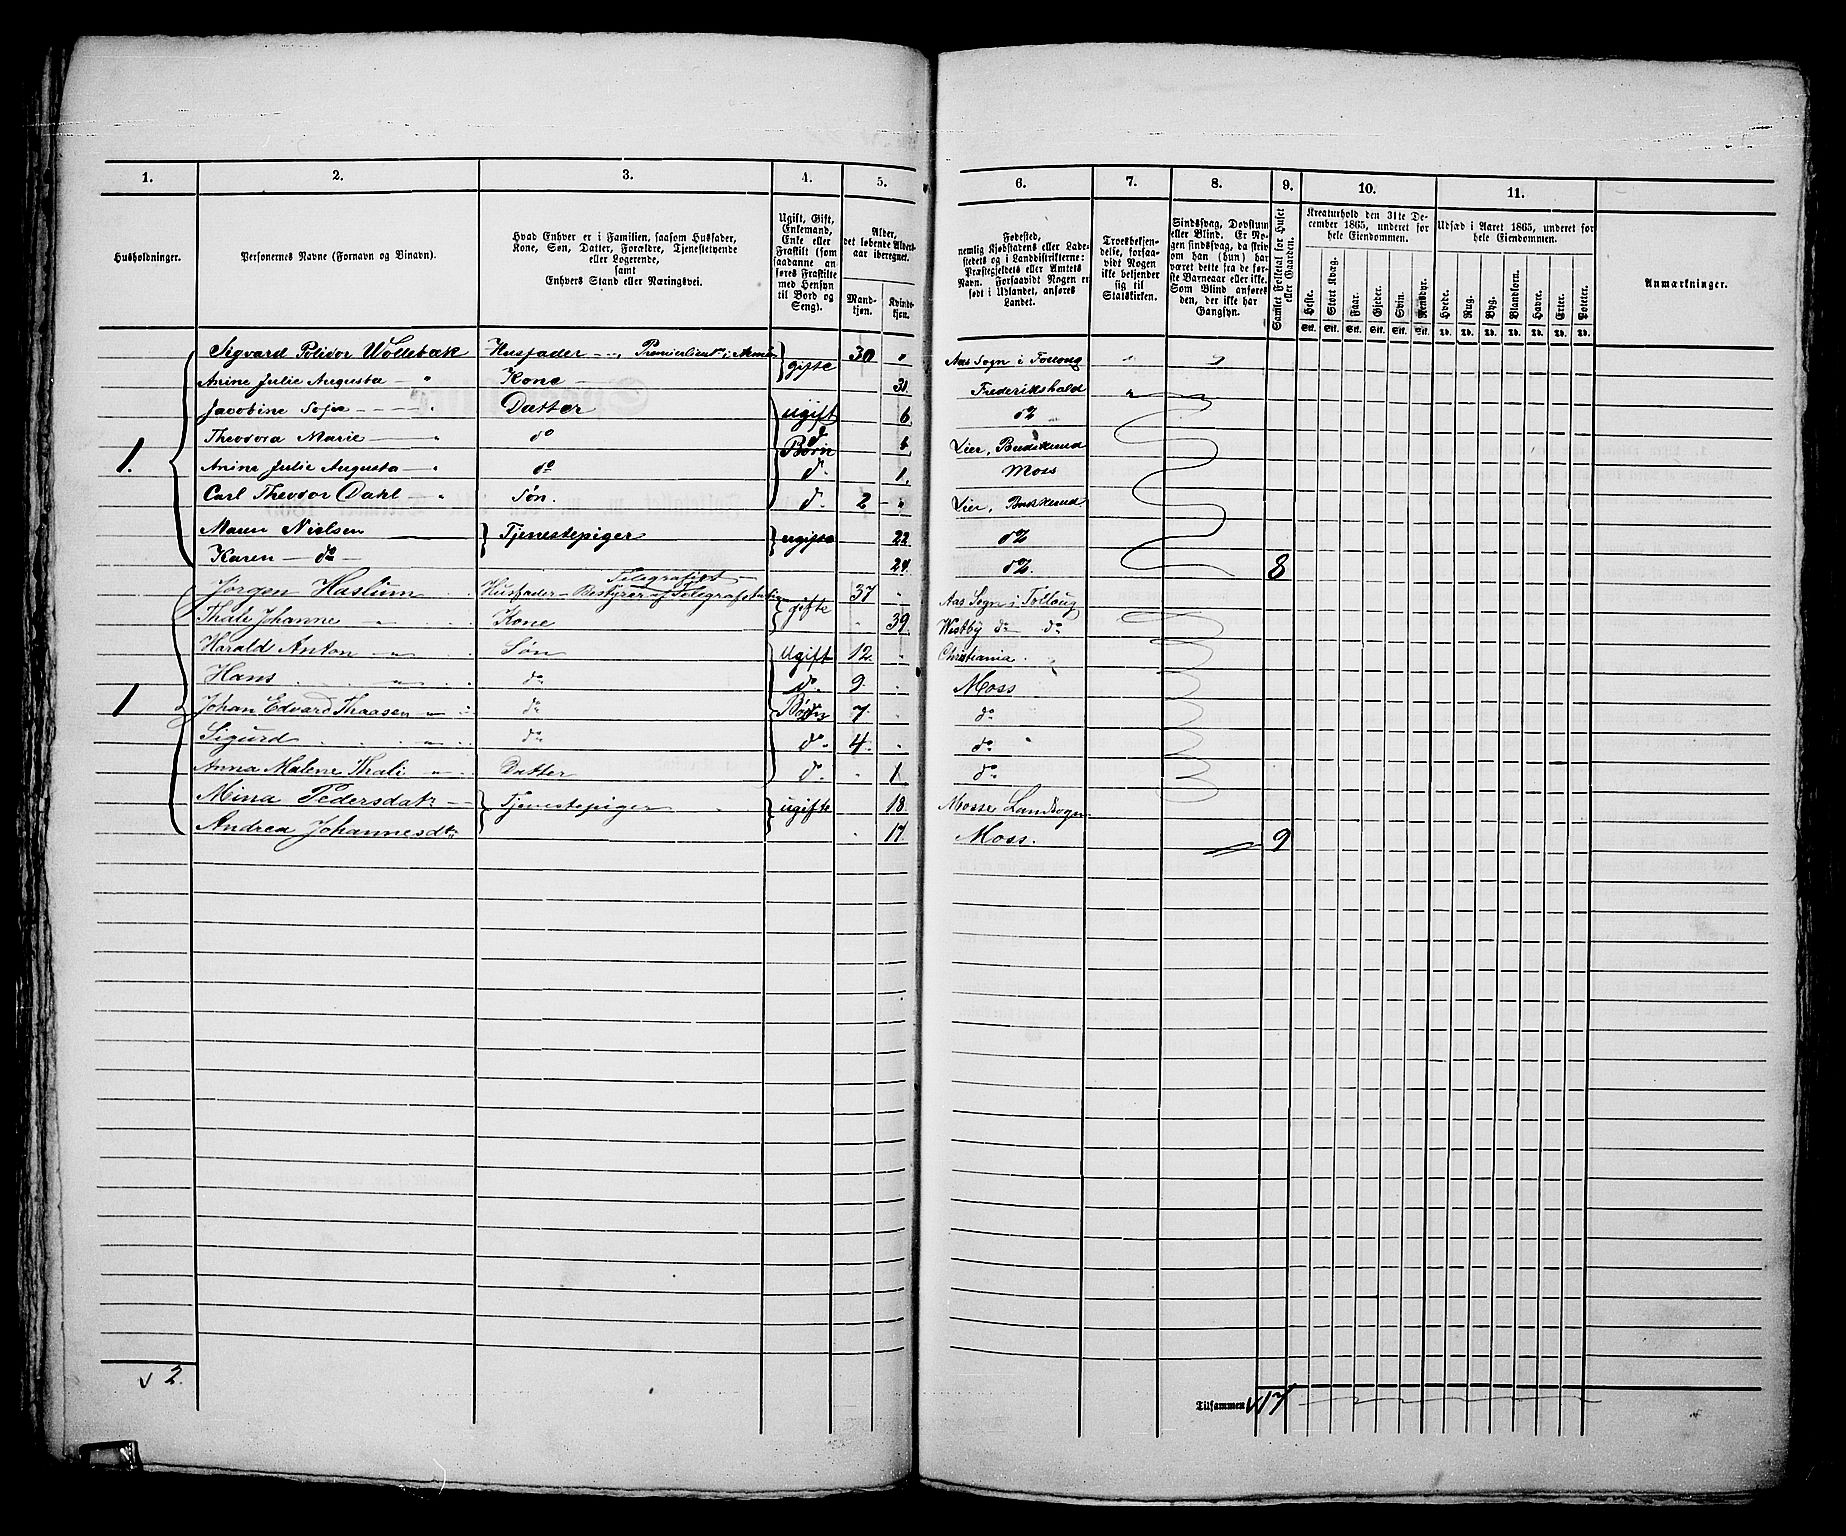 1. 2. 3. 4. 5. 6. 7. 8. 9. 10. 11.
Husholdninger.
Personernes Navne (Fornavn og Binavn).
Hvad Enhver er i Familien, saasom Husfader,
Kone, Søn, Datter, Forældre, Tjenestetyende
eller Logerende,
samt
Enhvers Stand eller Næringsvei.
Ugift, Gift,
Enkemand,
Enke eller
Fraskilt (som
saadanne an-
føres Fraskilte
med Hensyn
til Bord og
Seng).
Alder,
det løbende Alders-
aar iberegnet.
Mand-
kjøn.
Kvinde-
kjøn.
Fødested,
nemlig Kjøbstadens eller Lade-
stedets og i Landdistrikterne:
Præstegjeldets eller Amtets
Navn. Forsaavidt Nogen er
født i Udlandet, anføres
Landet.
Troesbekjen-
delse, forsaa-
vidt Nogen
ikke bekjender
sig til
Statskirken.
Sindssvag, Døvstum
eller Blind. Er No-
gen sindssvag, da skriv
om han (hun) har
været dette fra de før-
ste Barneaar eller ikke.
Som Blind anføres
den, der ikke har
Gangsyn.
Samlet Folketal for Huset
eller Gaarden.
Kreaturhold den 31te De-
cember 1865, underet for
hele Eiendommen.
Heste. Stort Kvæg. Faar. Gjeder. Svin. Rensdyr.
Stk. Stk. Stk. Stk. Stk. Stk.
Udsæd i Aaret 1865, underet for
hele Eiendommen.
Hvede. Rug. Byg. Blandkorn. Havre. Erter. Poteter.
Td. Td. Td. Td. Td. Td. Td.
Anmærkninger.
Sigvard Polidor Wollebæk Husfader Premierlieut i Armeen gifte 30 " Aas Sogn i Folloug
Anine Julie Augusta — " Kone 31. Frederikshald
Jacobine Sofie — " Datter ugift 6 do
Theodora Marie — " do d. Lier, Buskerud
1. Anine Julie Augusta — " do Børn d. 1. Moss
Carl Theodor Dahl " Søn. d. 2 " Lier, Buskerud
Maren Nielsen } Tjenestepiger } ugifte 22 do
Karen — do 24. do. 8
Jørgen Haslum Husfader — Bestyrer af Telegrafstation Telegrafist gifte 37 Aas Sogn i Folloug
Thale Johanne — " Kone 39. Westby do do
Harald Anton — " Søn Ugift 12. Christiania
Hans " do do. 9. Moss
1 Johan Edvard Thaasen " do Børn 7 do
Sigurd " do do. 4. do
Anna Malene Thali " Datter d. 1 do
Mina Pedersdatr } Tjenestepiger } ugifte 18. Mosse Landsogn
Andrea Johannesdtr 17. Moss. 9
v 2.
Tilsammen v 17